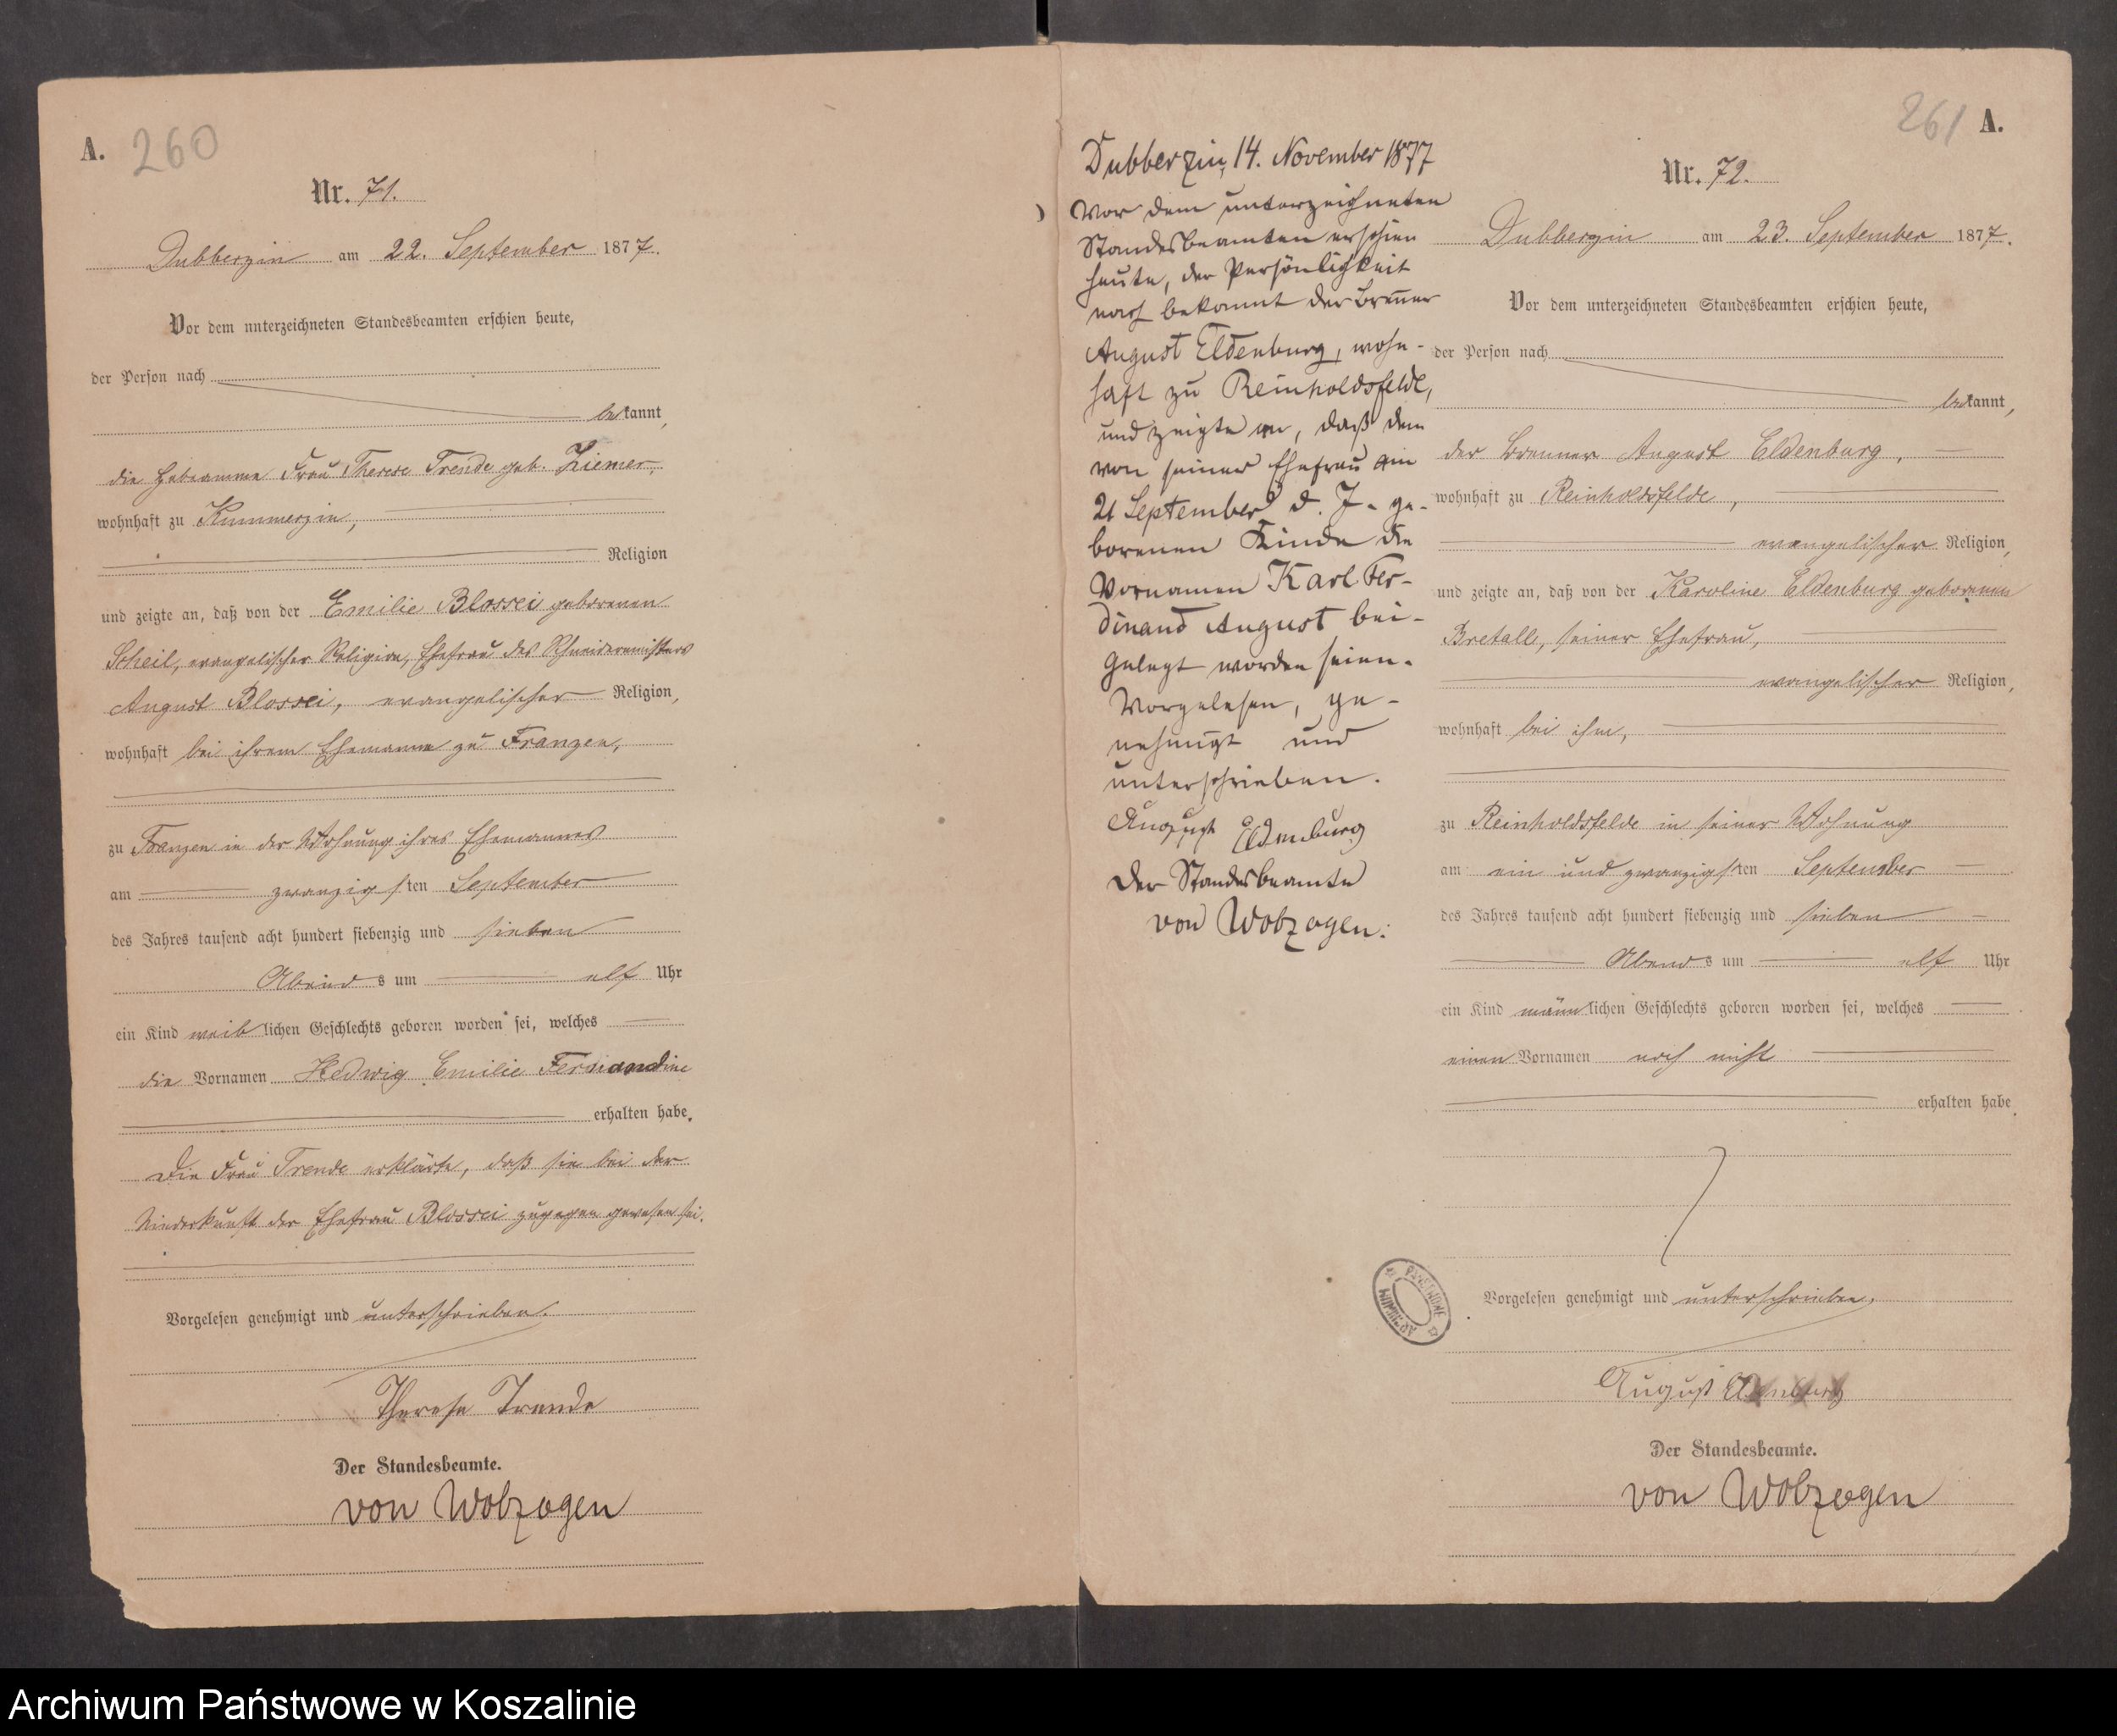 A. 260
Nr. 71.
Dubberzin am 22. September 1877.
Vor dem unterzeichneten Standesbeamten erschien heute,
der Person nach
bekannt,
die Hebeamme Frau Therese Trende geb. Ziemer,
wohnhaft zu Kummerzin,
Religion
und zeigte an, daß von der Emilie Blossei geborenen
Scheil, evangelischer Religion, Ehefrau des Schneidermeisters
August Blossei, evangelischer Religion,
wohnhaft bei ihrem Ehemanne zu Franzen,
zu Franzen in der Wohnung ihres Ehemannes
am zwanzigsten September
des Jahres tausend acht hundert siebenzig und sieben
Abends um elf Uhr
ein Kind weiblichen Geschlechts geboren worden sei, welches
die Vornamen Hedwig Emilie Fernandine
erhalten habe.
Die Frau Trende erklärte, daß sie bei der
Niederkunft der Ehefrau Blossei zugegen gewesen sei.
Vorgelesen genehmigt und unterschrieben.
Therese Trende
Der Standesbeamte.
von Wobzogen
Dubberzin, 14. November 1877
Vor dem unterzeichneten
Standesbeamten erschien
heute, der Persönlichkeit
nach bekannt der Brenner
August Eldenburg, wohn-
haft zu Reinholdsfelde,
und zeigte an, daß dem
von seiner Ehefrau am
21 September d. J. ge-
borenen Kinde die
Vornamen Karl Fer-
dinand August bei-
gelegt worden seien.
Vorgelesen, ge-
nehmigt und
unterschrieben.
August Eldenburg
Der Standesbeamte
von Wobzogen.
261 A.
Nr. 72.
Dubberzin am 23. September 1877.
Vor dem unterzeichneten Standesbeamten erschien heute,
der Person nach
bekannt,
der Brenner August Eldenburg,
wohnhaft zu Reinholdsfelde,
evangelischer Religion,
und zeigte an, daß von der Karoline Eldenburg geborenen
Bretall, seiner Ehefrau,
evangelischer Religion,
wohnhaft bei ihm,
zu Reinholdsfelde in seiner Wohnung
am ein und zwanzigsten September
des Jahres tausend acht hundert siebenzig und sieben
Abends um elf Uhr
ein Kind männlichen Geschlechts geboren worden sei, welches
einen Vornamen noch nicht
erhalten habe.
Vorgelesen genehmigt und unterschrieben.
August Eldenburg
Der Standesbeamte.
von Wobzogen
Archiwum Państwowe w Koszalinie